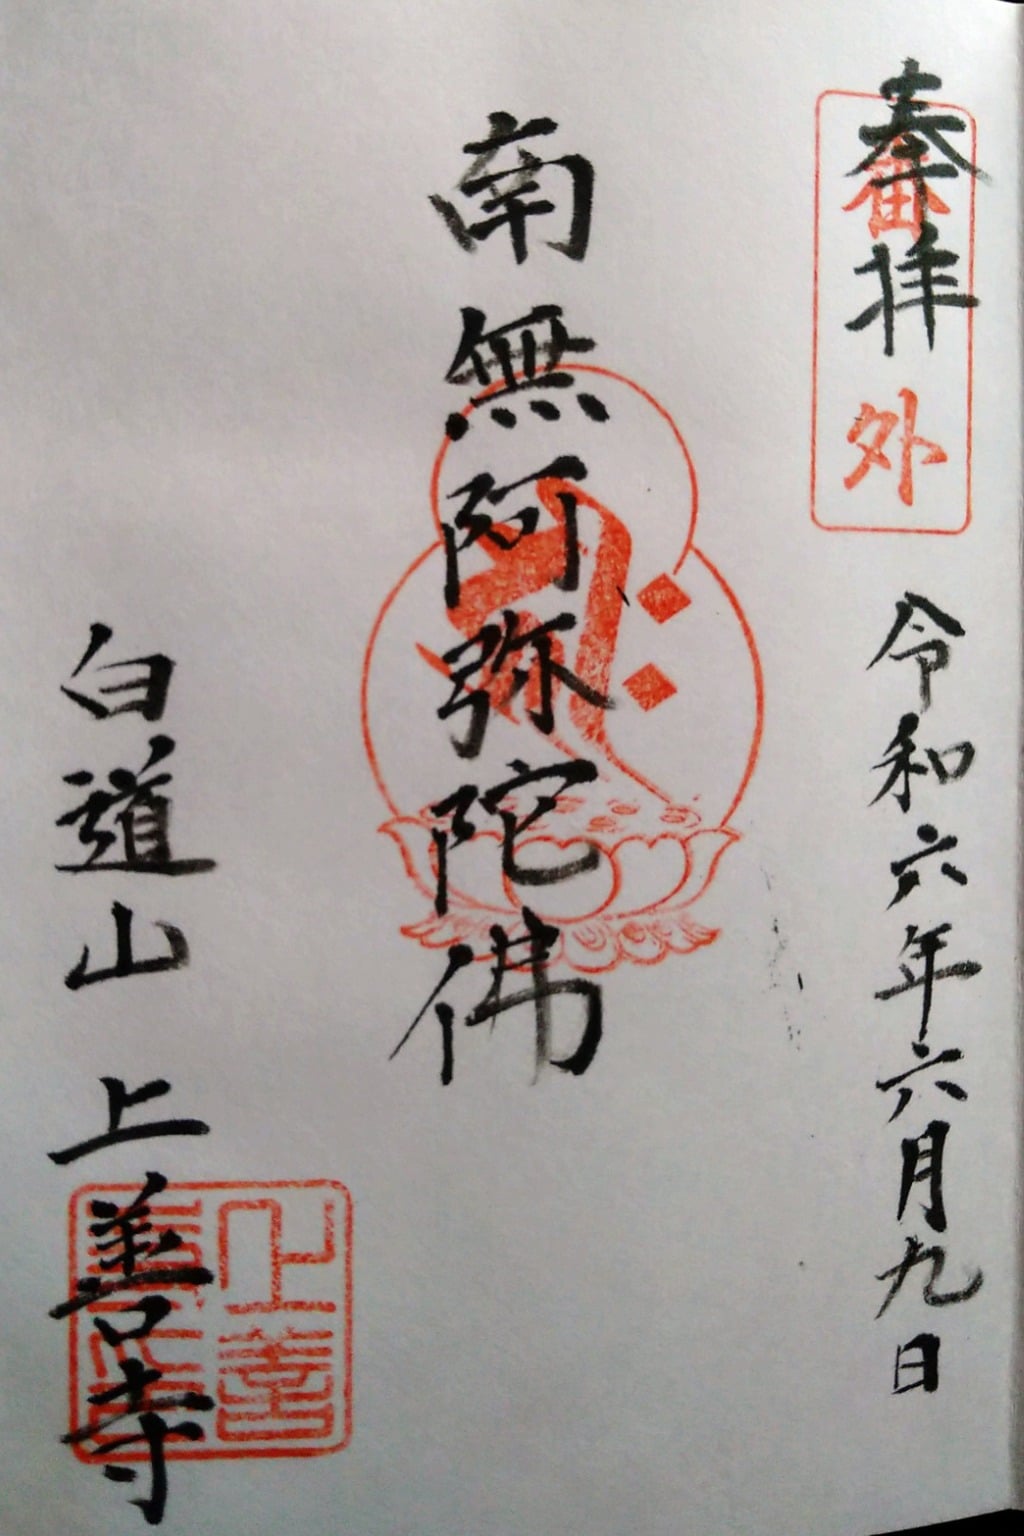 奉拝
番外
令和六年六月九日
南無阿弥陀佛
白道山 上善寺
上善